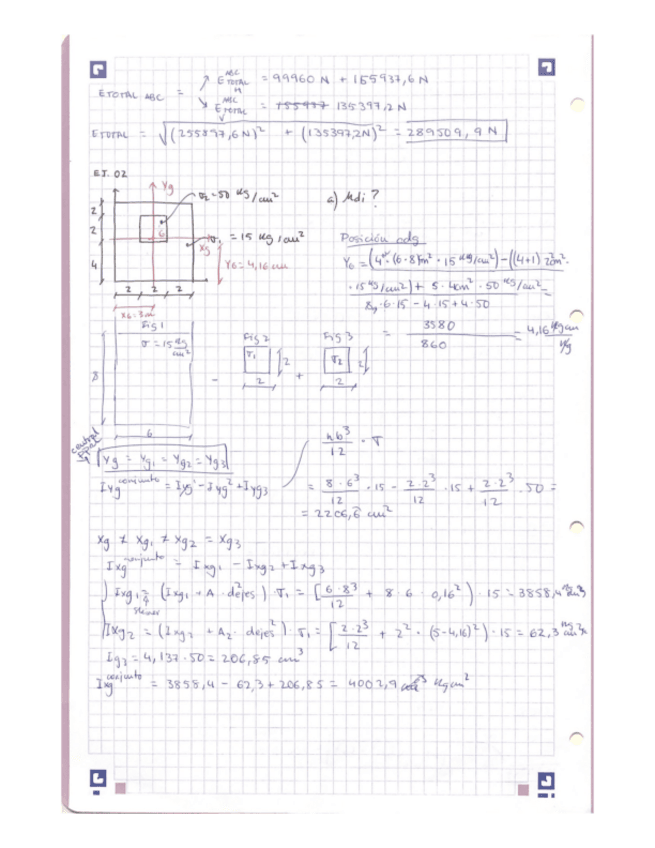 ETOTAL ABC = ↗ E TOTAL ABC H = 99960 N + 155937,6 N
↘ E TOTAL ABC = 135397,2 N
ETOTAL = √(255897,6N)² + (135397,2N)² = 289509,9 N
EJ. 02
Yg
σ2 = 50 Kg/cm²
a) Mdi?
2
2
4
6
Xg
σ1 = 15 Kg/cm²
YG = 4,16 cm
2 2 2
XG = 3 m
Posición cdg
YG = (4 · (6·8)m² · 15 Kg/cm²) - ((4+1) 2²cm².
· 15 Kg/cm²) + 5 · 4cm² · 50 Kg/cm² =
8 · 6 · 15 - 4 · 15 + 4 · 50
= 3580 / 860 = 4,16 Kg cm / Kg
Fig 1
σ = 15 Kg/cm²
8
6
-
Fig 2
σ1
2
2
+
Fig 3
σ2
2
2
central ppal
Yg = Yg1 = Yg2 = Yg3
Iyg conjunto = Iyg - Iyg2 + Iyg3
hb³/12 · σ
= 8·6³/12 · 15 - 2·2³/12 · 15 + 2·2³/12 · 50 =
= 2206,6 cm²
Xg ≠ Xg1 ≠ Xg2 = Xg3
Ixg conjunto = Ixg1 - Ixg2 + Ixg3
Ixg1 = (Ixg1 + A · dejes²) · σ1 = [6·8³/12 + 8·6·0,16²) · 15 = 3858,4
Steiner
Ixg2 = (Ixg2 + A2 · dejes²) · σ1 = [2·2³/12 + 2² · (5-4,16)²) · 15 = 62,3
Ig3 = 4,137 · 50 = 206,85 cm³
Ixg conjunto = 3858,4 - 62,3 + 206,85 = 4002,9 Kg cm²